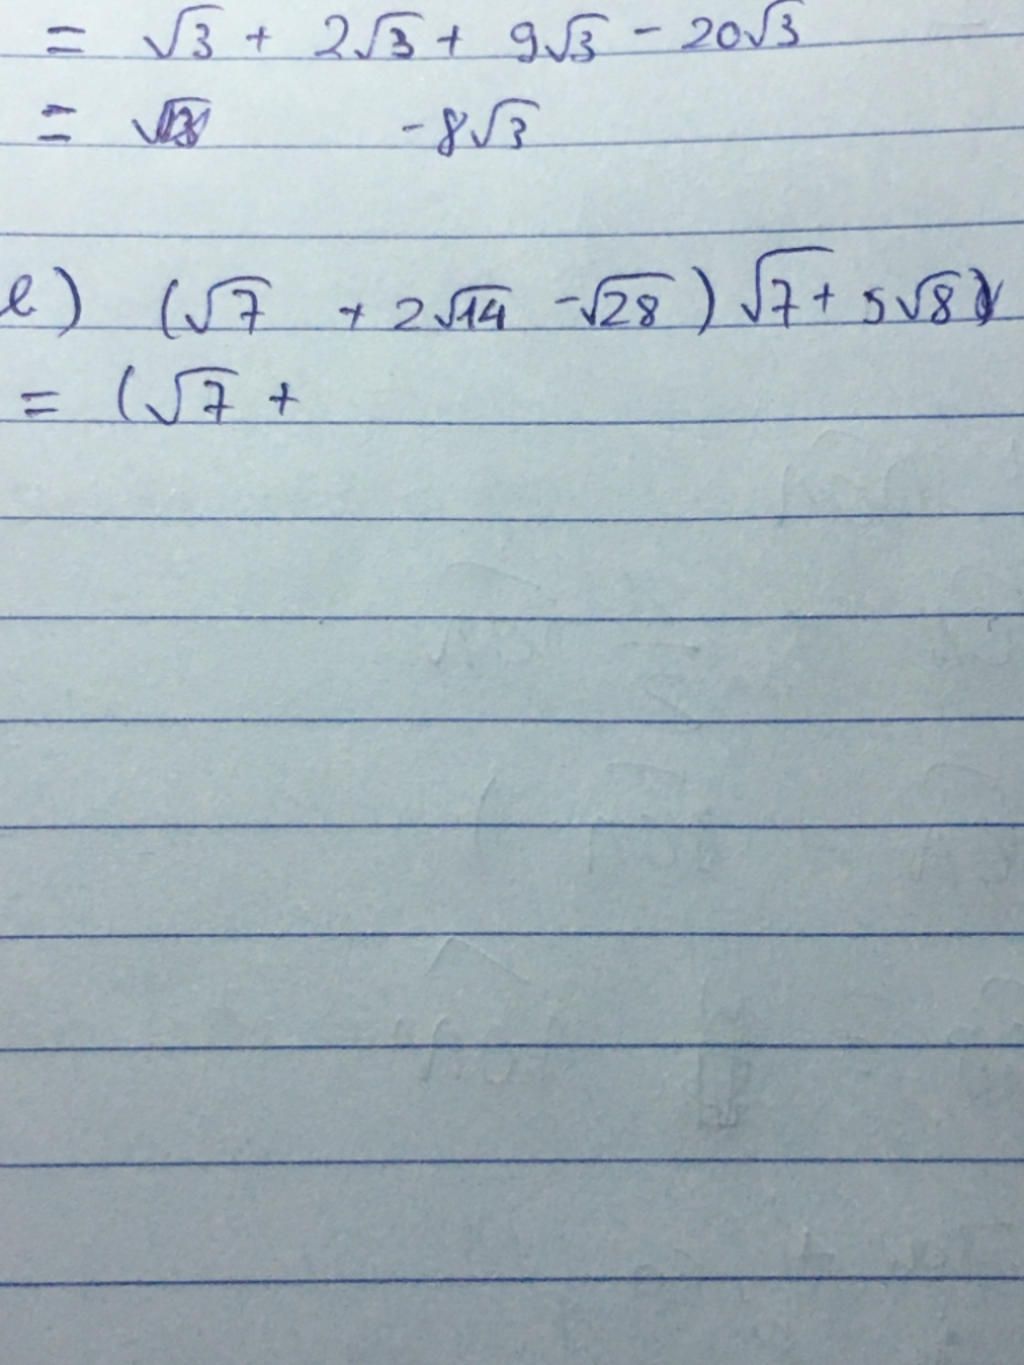 = √3 + 2√3 + 9√3 - 20√3
= -8√3
e) (√7 + 2√14 - √28) √7 + 5√8
= (√7 +